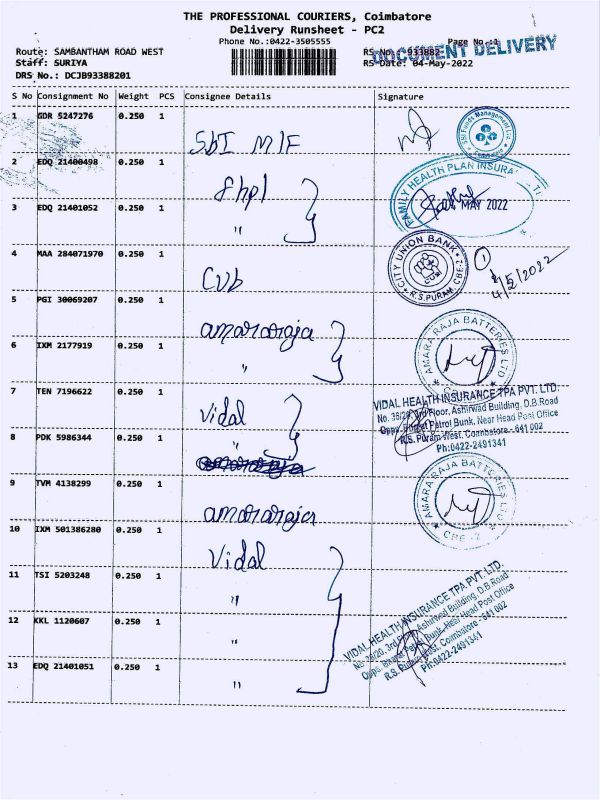 THE PROFESSIONAL COURIERS, Coimbatore
Delivery Runsheet - PC2
Phone No.:0422-3505555 Page No.:1
Route: SAMBANTHAM ROAD WEST RS No.: 933882
DOCUMENT DELIVERY
Staff: SURIYA RS Date: 04-May-2022
DRS No.: DCJB93388201
S No Consignment No Weight PCS Consignee Details Signature
1 GDR 5247276 0.250 1 SbI M/F
SBI Funds Management Ltd.
2 EDQ 21400498 0.250 1 fhpl
FAMILY HEALTH PLAN INSURA
3 EDQ 21401052 0.250 1 "
4 MAY 2022
4 MAA 284071970 0.250 1 CUb
CITY UNION BANK
R.S.PURAM, CBE-2
1
4/5/2022
5 PGI 30069207 0.250 1 amararaja
6 IXM 2177919 0.250 1 "
AMARA RAJA BATTERIES LTD
7 TEN 7196622 0.250 1 Vidal
VIDAL HEALTH INSURANCE TPA PVT. LTD.
No. 36/20, 3rd Floor, Ashirwad Building, D.B.Road
Oppo. Bharat Petrol Bunk, Near Head Post Office
R.S. Puram West, Coimbatore - 641 002
Ph:0422-2491341
8 PDK 5986344 0.250 1 "
9 TVM 4138299 0.250 1 amararaja
AMARA RAJA BATTERIES LTD
CBE -2
10 IXM 501386280 0.250 1 Vidal
11 TSI 5203248 0.250 1 "
12 KKL 1120607 0.250 1 "
VIDAL HEALTH INSURANCE TPA PVT. LTD.
No. 36/20, 3rd Floor, Ashirwad Building, D.B.Road
Oppo. Bharat Petrol Bunk, Near Head Post Office
R.S. Puram West, Coimbatore - 641 002
Ph:0422-2491341
13 EDQ 21401051 0.250 1 "